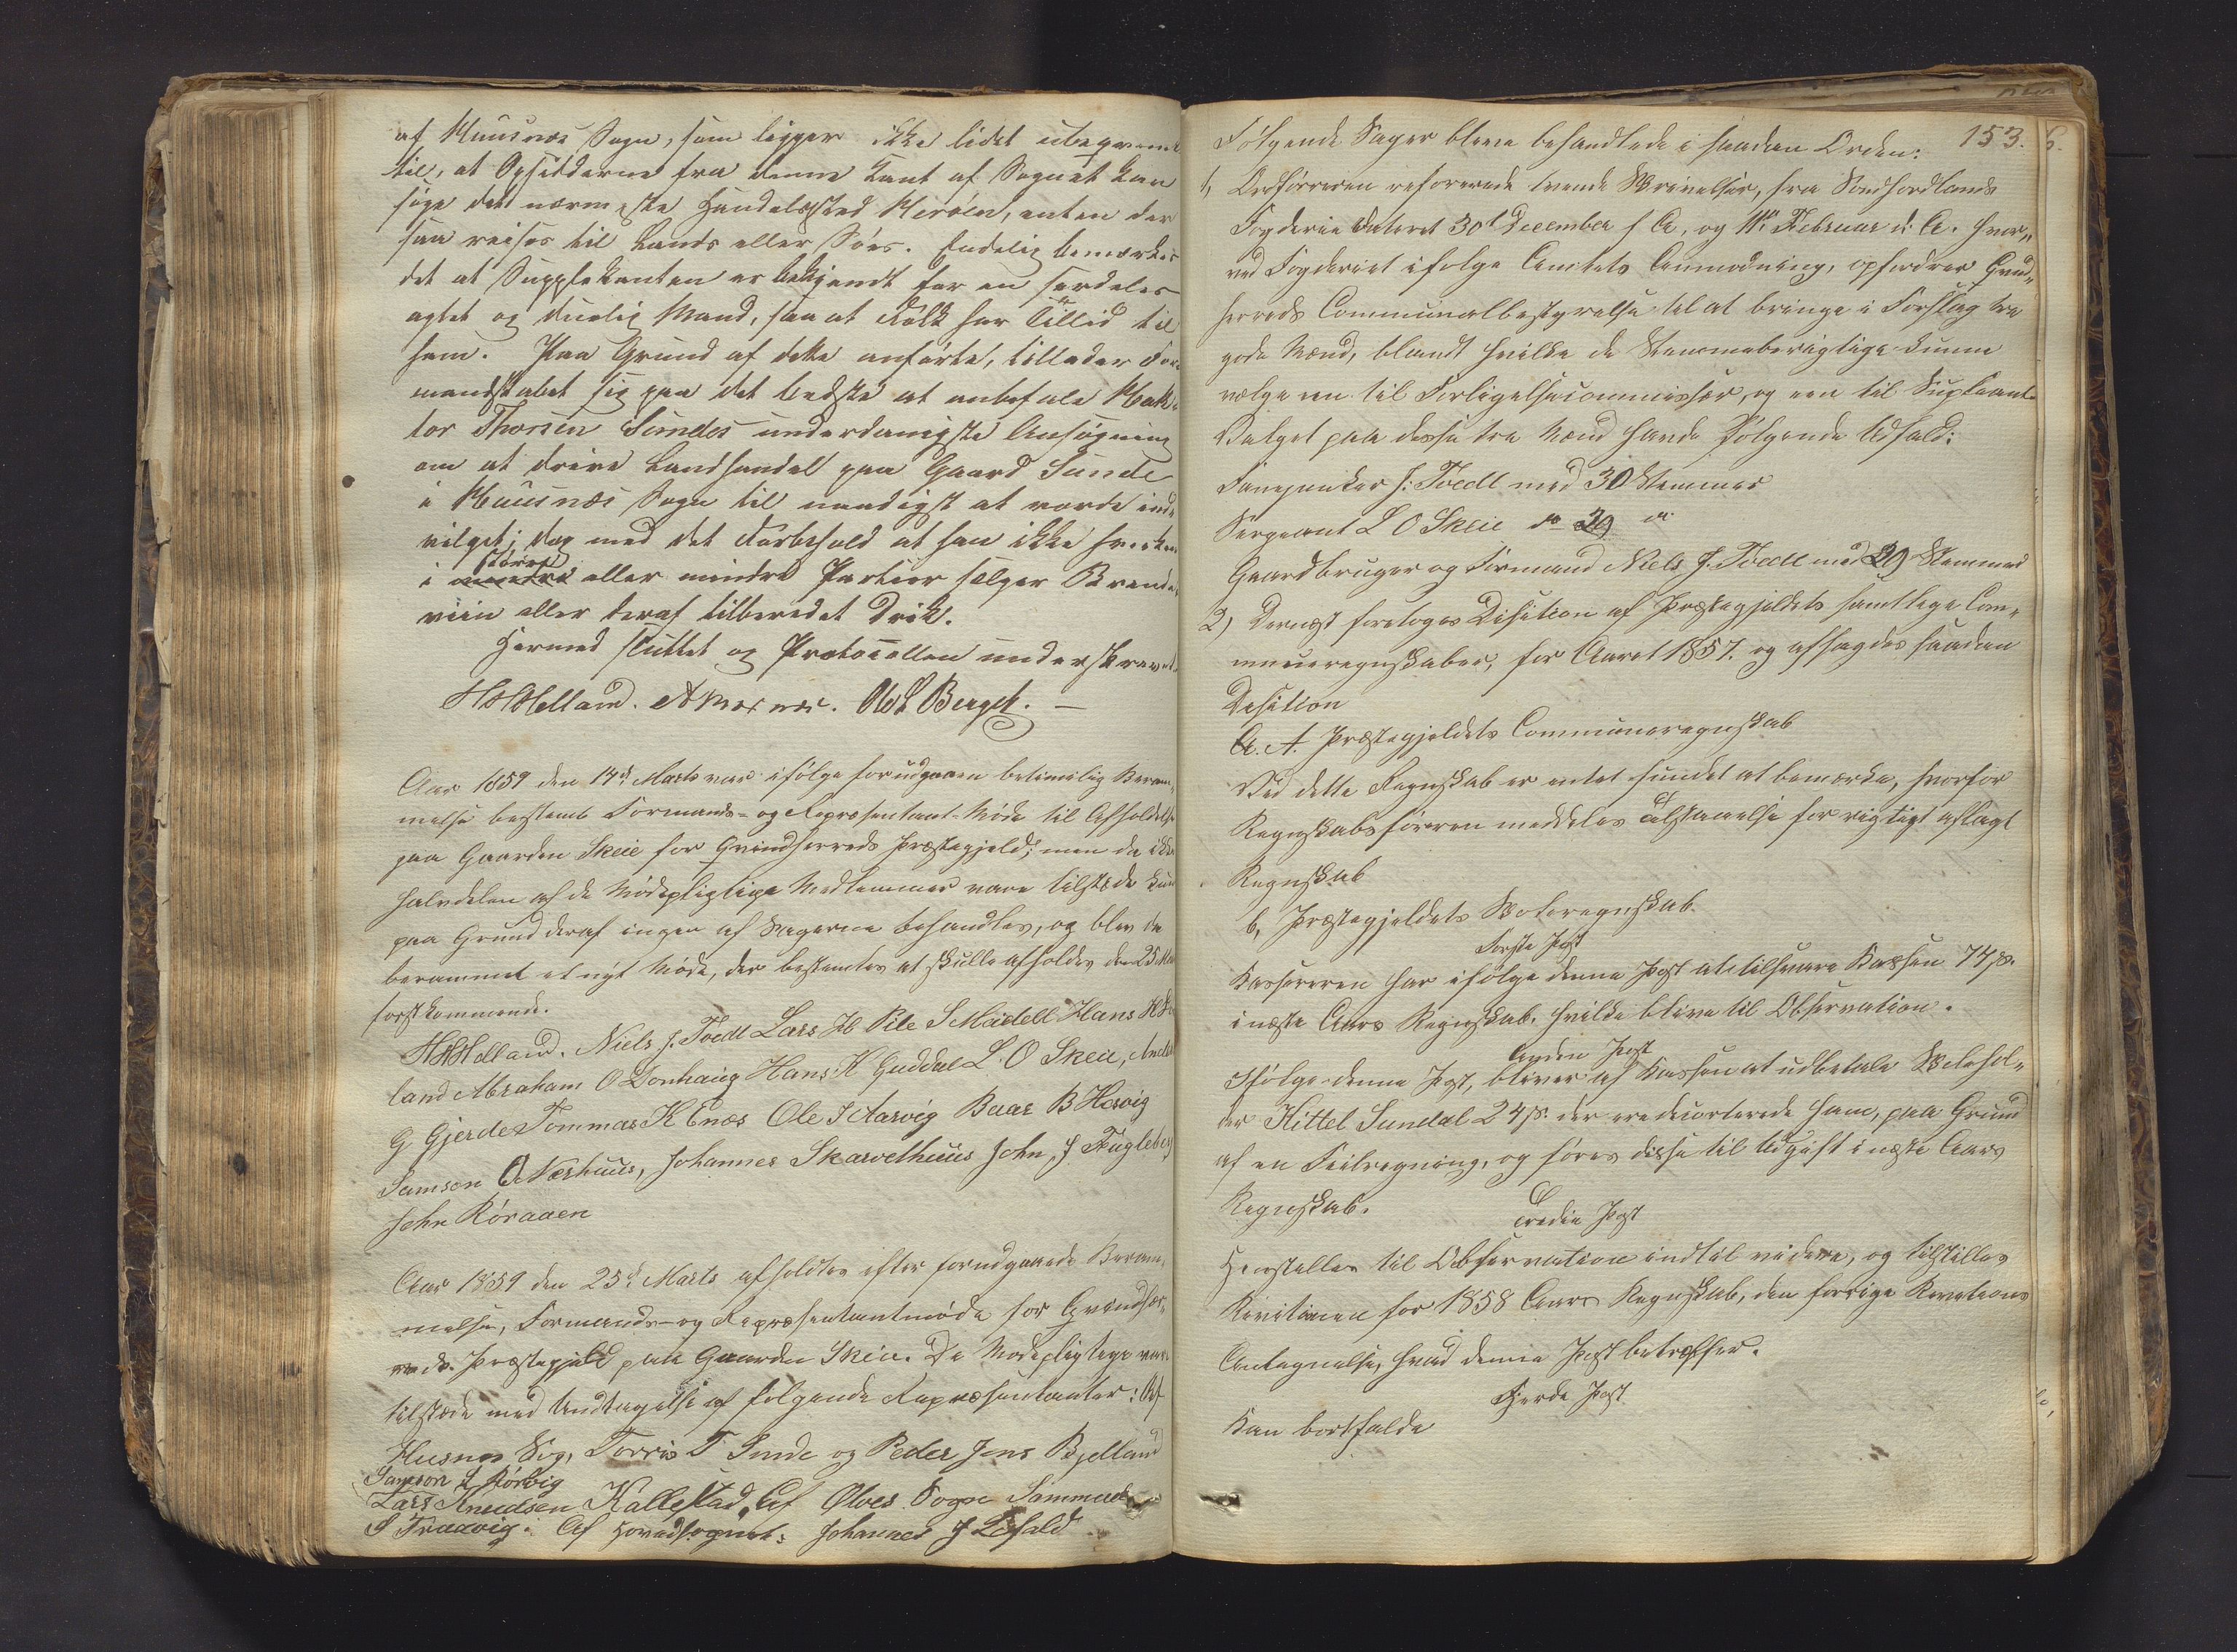 af Huusnæs Sogn, som ligger ikke lidet ubeqvemt
til, at Opsidderne fra denne Kant af Sognet kan
søge det nærmeste Handelssted Herøen, enten der
saa reises til Lands eller Søes. Endelig bemærkes
det at Supplikanten er bekjendt for en særdeles
agtet og duelig Mand, saa at Folk har Tillid til
ham. Paa Grund af dette anførte, tillader For-
mandskabet sig paa det bedste at anbefale
Thorsen Sundes underdanigste Ansøgning
om at drive Landhandel paa Gaard Sunde
i Huusnæs Sogn til naadigst at vorde ind-
vilget; dog med det Forbehold at han ikke hverken
større
i mindre eller mindre Partier sælger Brænde-
viin eller deraf tilberedet Drik.
Hermed sluttet og Protocollen underskrevet
H Helland. A Ols Berget. —
Aar 1859 den 14de Marts var ifølge forudgaaen betimelig Beram-
melse bestemt Formands- og Repræsentant-Møde til Afholdelse
paa Gaarden Skeie for Qvindherreds Præstegjeld; men da ikke
halvdelen af de Mødepligtige Medlemmer vare tilstæde kun
paa Grund deraf ingen af Sagerne behandles, og blev da
berammet et nyt Møde, der bestemtes at skulle afholdes den 25
førstkommende.
H Helland. Niels J. Toedl Lars H Pile S Meidell Hans H
land Abraham O Donhaug Hans K Guddal L. O Skeie,
G Gjerde Tommas H Enæs Ole J Aarvig Baar B Hervig
Samson Nerhuus, Johannes Skarvelhuus John J Fugleberg
John Røraaen
Aar 1859 den 25de Marts afholdtes efter forudgaaende Beram-
melse, Formands- og Repræsentantmøde for Qvindher-
reds Præstegjeld paa Gaarden Skeie. De Mødepligtige var
tilstæde med Undtagelse af følgende Repræsentanter: Af
Husnæs Sogn, Torris T Sunde og Peder Jens Bjelland
Samson S Rørvig
Lars Knudsen Kallestad, Af Ølves Sogn
S Traavig. Af Hovedsognet: Johannes J Løfald
153. 6.
Følgende Sager bleve behandlede i saadan Orden:
1, Ordføreren refererede tvende Skrivelser, fra Søndhordlands
Fogderie dateret 30te December f A, og 11te Februar d. A. hvor-
ved Fogderiet ifølge Amtets Anmodning, opfordrer Qvind-
herreds Communalbestyrelse til at bringe i Forslag tre
gode Mænd, blandt hvilke de Stemmeberigtige kunne
vælge een til Forligelsescommissær, og een til Supleant.
Valget paa desse tre Mænd havde følgende Udfald:
J. Toedl med 30 Stemmer
Sergeant L O Skeie do 29 do
Gaardbruger og Formand Niels J. Toedl med 29 Stemmer
2, Dernæst foretoges Desition af Præstegjeldets samtlige Com-
muneregnskaber, for Aaret 1857. og afsagdes saadan
Desition
A. Præstegjeldets Communeregnskab
Ved dette Regnskab er intet fundet at bemærke, hvorfor
Regnskabsføreren meddeles tilstaaelse for rigtigt aflagt
Regnskab
b, Præstegjeldets Skoleregnskab.
Første Post
Kassereren har ifølge denne Post at tilsvare Kassen 74 s.
i næste Aars Regnskab. hvilke blive til Observation.
Anden Post
Ifølge denne Post, bliver af Kassen at udbetale Skolehol-
der Kittel Sundal 24 s. der ere decorterede ham, paa Grund
af en Feilregning, og føres disse til Udgift i næste Aars
Regnskab.
Tredie Post
Henstilles til Observation indtil videre, og tilstilles
Revitionen for 1858 Aars Regnskab, den forrige Revitions
Antegnelse, hvad denne Post betræffer.
Fjerde Post
Kan bortfalde